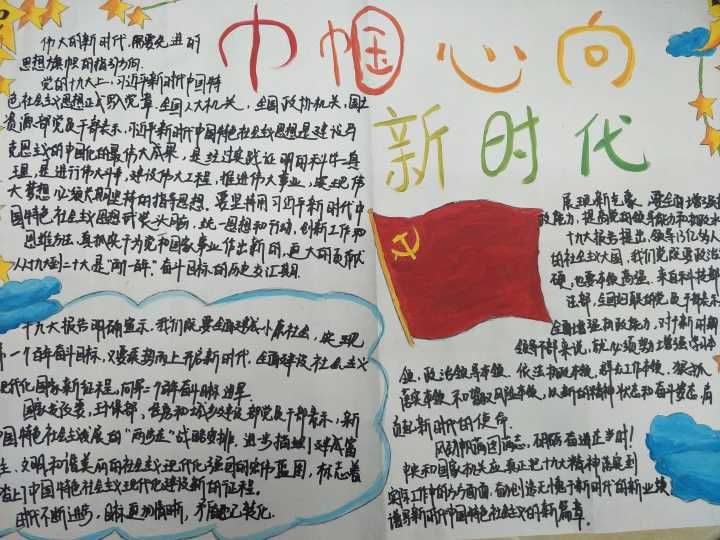 巾帼心向
新时代
伟大的新时代,需要先进的
思想旗帜的指引方向.
党的十九大上,习近平新时代中国特
色社会主义思想正式写入党章.全国人大机关,全国政协机关,国土
资源部党员干部表示,习近平新时代中国特色社会主义思想是建设马
克思主义的中国化的最伟大成果,是经过实践证明的科学真
理,是进行伟大斗争,建设伟大工程,推进伟大事业,实现伟
大梦想,必须长期坚持的指导思想.要坚持用习近平新时代中
国特色社会主义思想武装头脑,统一思想和行动,创新工作和
思维方法,真抓实干为党和国家事业作出新的,更大的贡献
从十九大到二十大是"两个一百年"奋斗目标的历史交汇期.
十九大报告明确宣示,我们既要全面建成小康社会,实现
第一个百年奋斗目标,又要乘势而上开启新时代,全面建设社会主义
现代化国家新征程,向第二个百年奋斗目标进军
国家发改委,环保部,住房和城乡建设部党员干部表示,新
中国特色社会主义发展的"两步走"战略安排,进步描划建成富
主、文明和谐美丽的社会主义现代化强国的宏伟蓝图,标志着
踏上了中国特色社会主义现代化建设新的征程。
时代不断进步,目标更加清晰,矛盾已转化.
展现新气象,要全面增强执
政能力,提高党的领导能力和执政水
十九大报告提出,领导13亿多人
的社会主义大国,我们党既要政治
硬,也要本领高强.来自科技部
证部,全国妇联的党员干部表示
全面增强执政能力,对于新时期
领导干部来说,就必须努力增强学习本
领,政治领导本领,依法执政本领,群众工作本领,狠抓
落实本领,和驾驭风险本领,以新的精神状态和奋斗姿态,肩
负起新时代的使命.
风劲帆满图高志,砥砺奋进正当时!
中央和国家机关应真正把十九大精神落实到
实际工作中的方方面面,奋力创造无愧于新时代的新业绩
谱写新时代中国特色社会主义的新篇章。